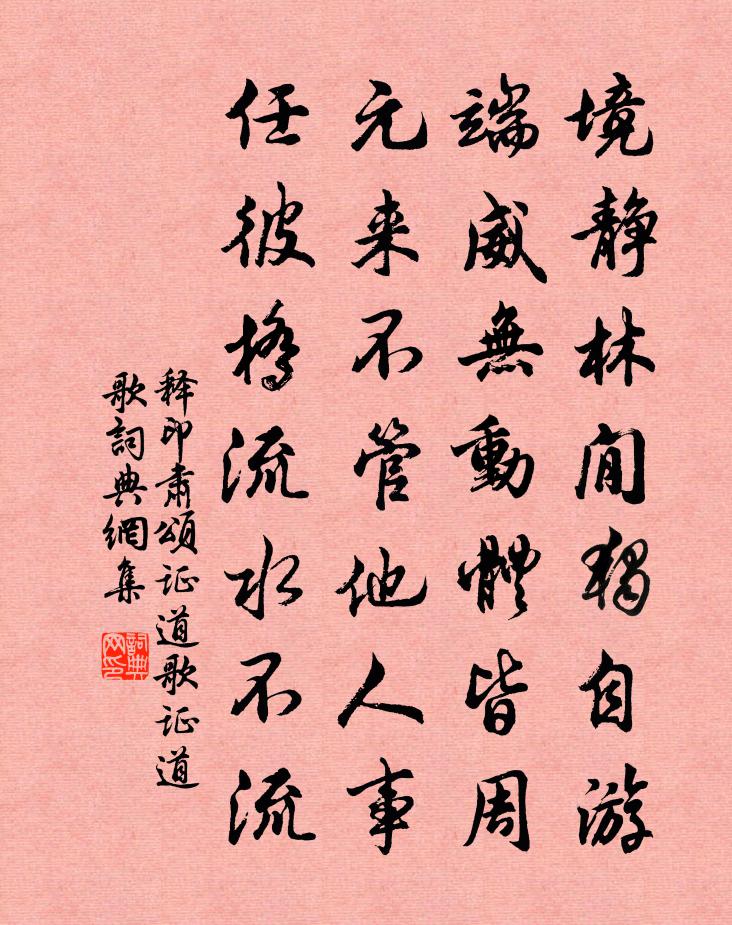 境静林间独自游
端威無動體皆周
元来不管他人事
任彼橋流水不流
释印肃頌证道歌证道
歌詞典網集
詞典网印